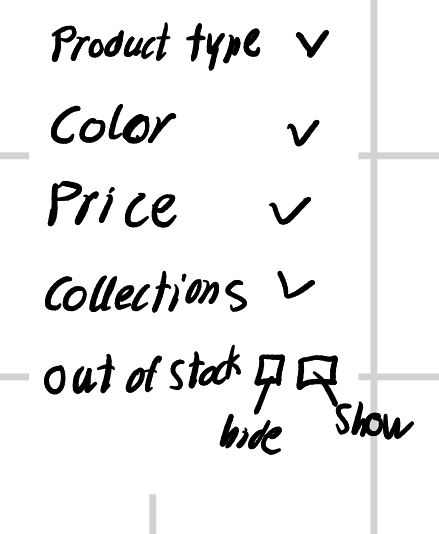 Product type
Color
Price
Collections
out of stock
hide
Show